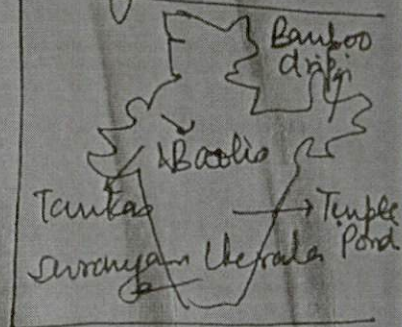 Bamboo
drip
Baolis
Tankas
Temple
Pond
Surangam Kerala